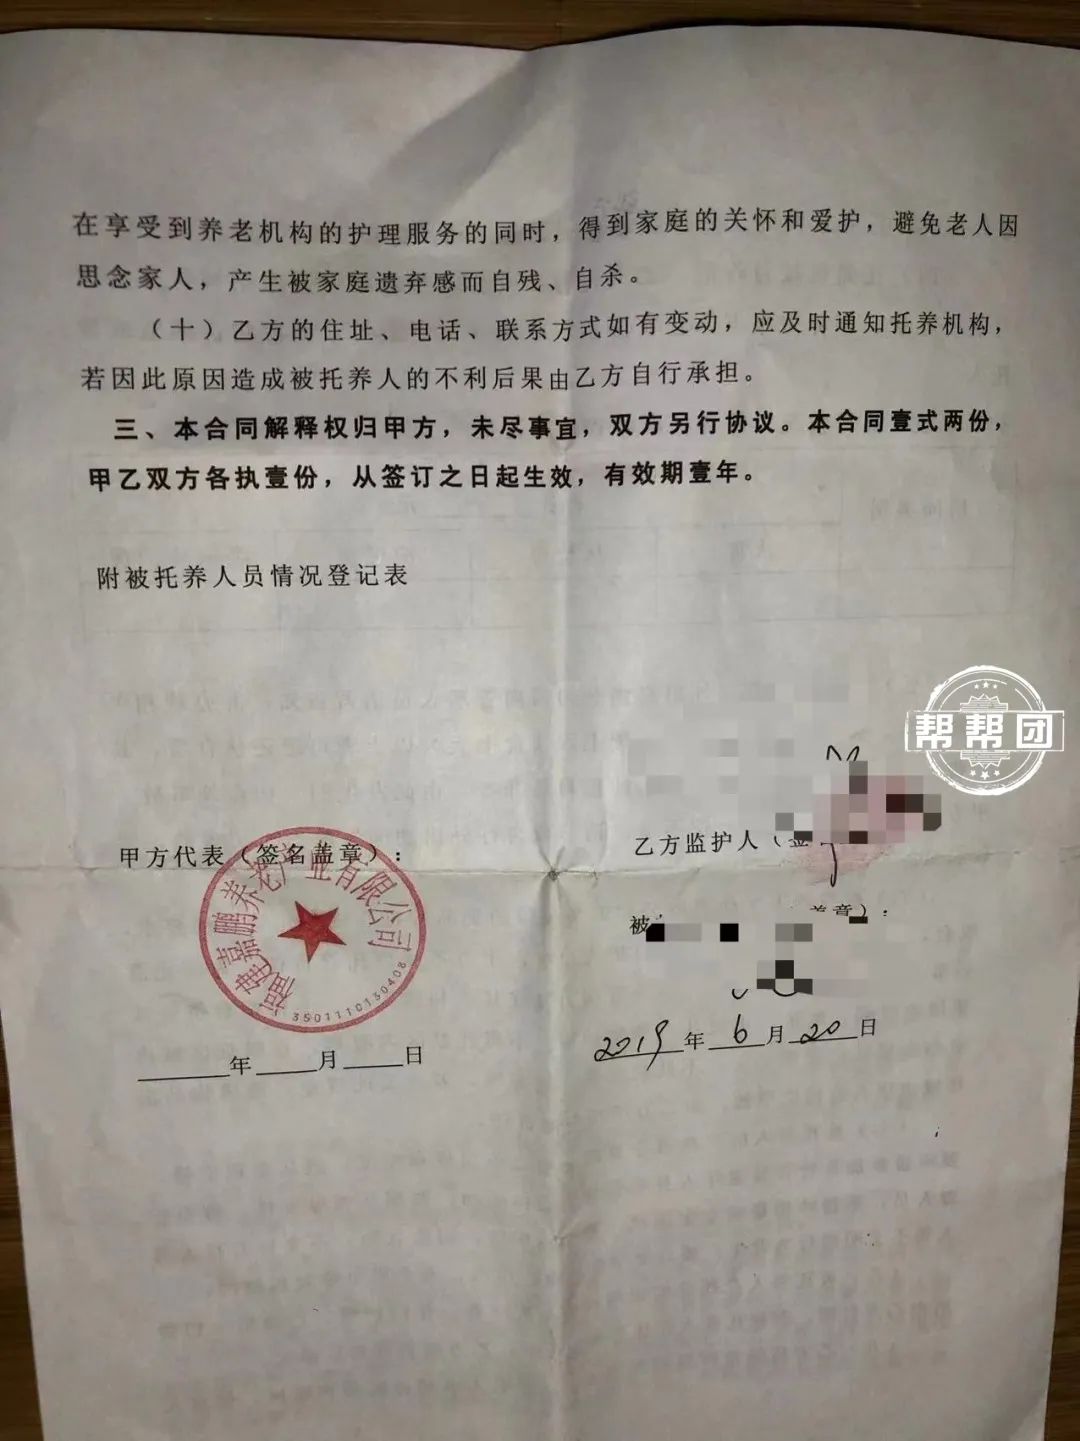 在享受到养老机构的护理服务的同时，得到家庭的关怀和爱护，避免老人因
思念家人，产生被家庭遗弃感而自残、自杀。
（十）乙方的住址、电话、联系方式如有变动，应及时通知托养机构，
若因此原因造成被托养人的不利后果由乙方自行承担。
三、本合同解释权归甲方，未尽事宜，双方另行协议。本合同壹式两份，
甲乙双方各执壹份，从签订之日起生效，有效期壹年。
附被托养人员情况登记表
帮帮团
甲方代表（签名盖章）：
乙方监护人（签
福建嘉鹏养老产业有限公司
3501110130408
被
盖章）：
年 月 日
2019年 6月 20日